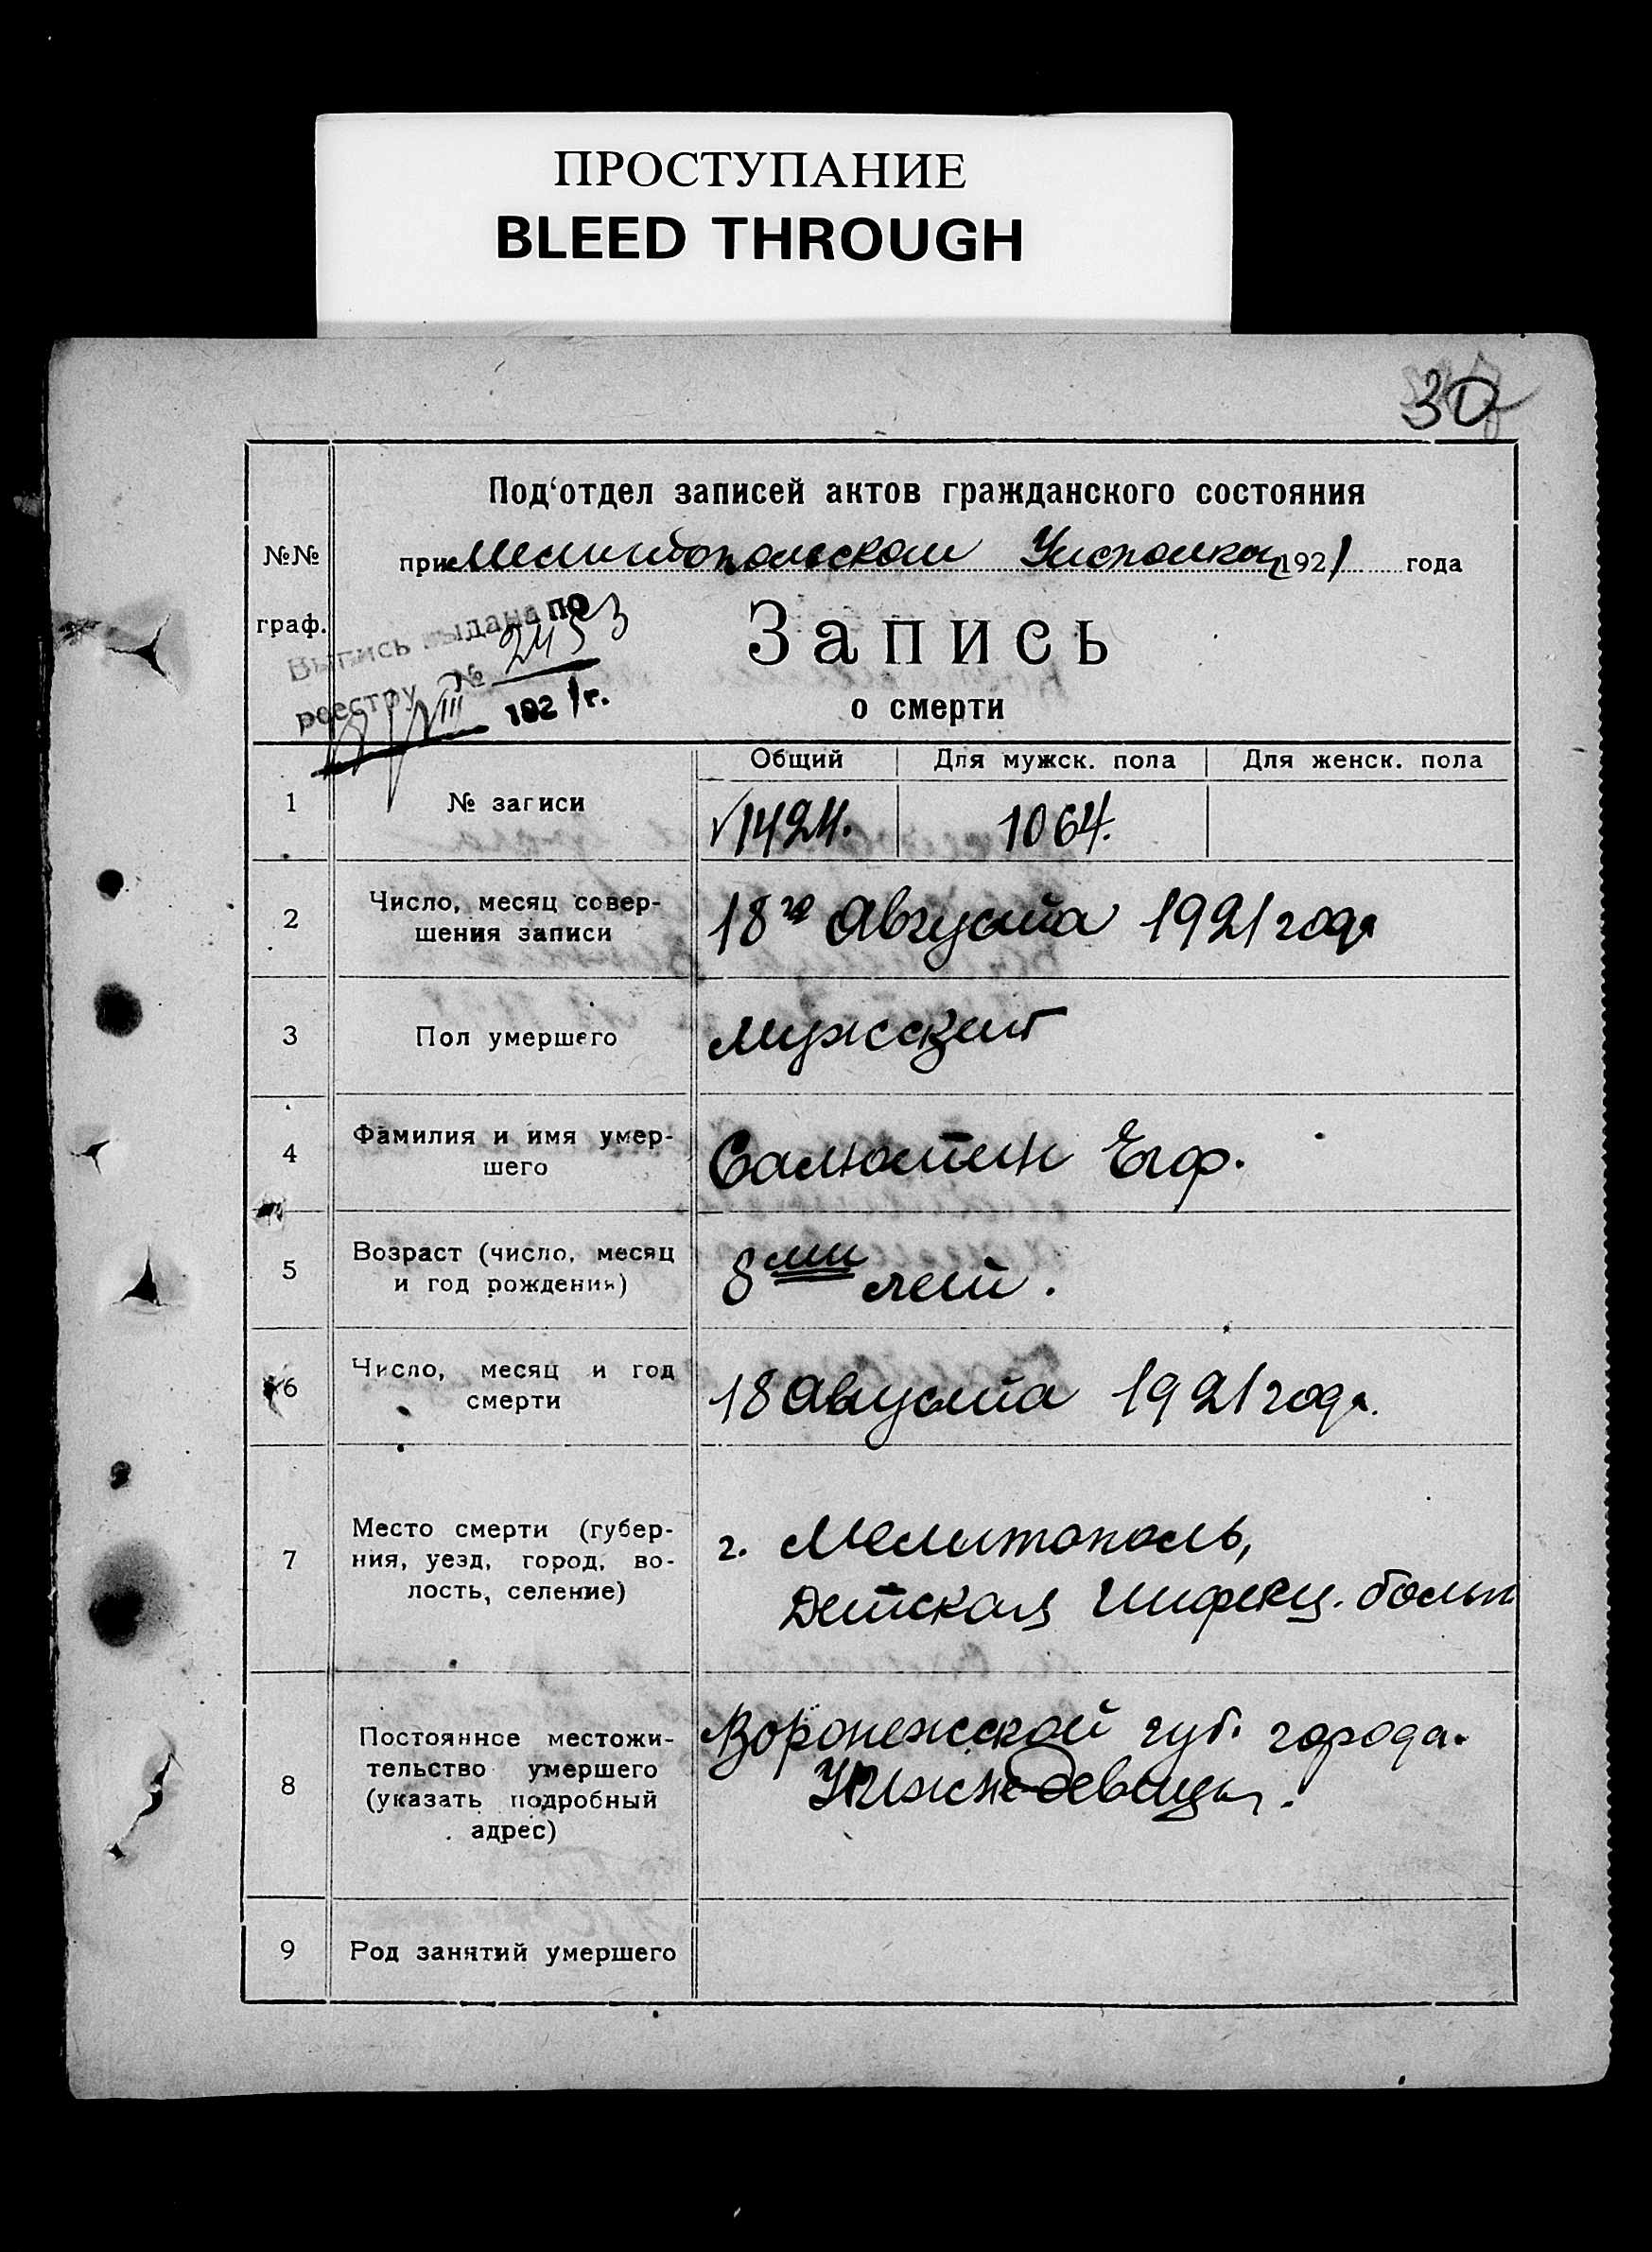 ПРОСТУПАНИЕ
BLEED THROUGH
30
Под‘отдел записей актов гражданского состояния
№№
при Мелитопольском Уисполкоме 1921 года
граф.
Выпись выдана по
реестру № 2453
VIII 1921 г.
Запись
о смерти
Общий Для мужск. пола Для женск. пола
1 № записи 1424. 1064.
2 Число, месяц совер-
шения записи
18го Августа 1921 года
3 Пол умершего мужской
4 Фамилия и имя умер-
шего
Салютин Егор.
5 Возраст (число, месяц
и год рождения)
8ми лет.
6 Число, месяц и год
смерти
18 Августа 1921 года.
7 Место смерти (губер-
ния, уезд, город, во-
лость, селение)
г. Мелитополь,
Детская Инфекц. больн.
8 Постоянное местожи-
тельство умершего
(указать подробный
адрес)
Воронежской губ. города
Нижнедевицка.
9 Род занятий умершего